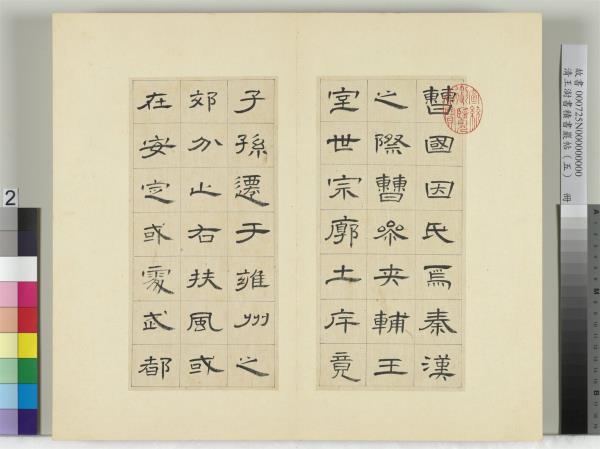 曹國因氏焉秦漢
之際曹參夾輔王
室世宗廓土斥竟
子孫遷于雍州之
郊分止右扶風或
在安定或處武都
故書 000725N000000000
清王澍書積書巖帖(五) 冊
2
A
M
B